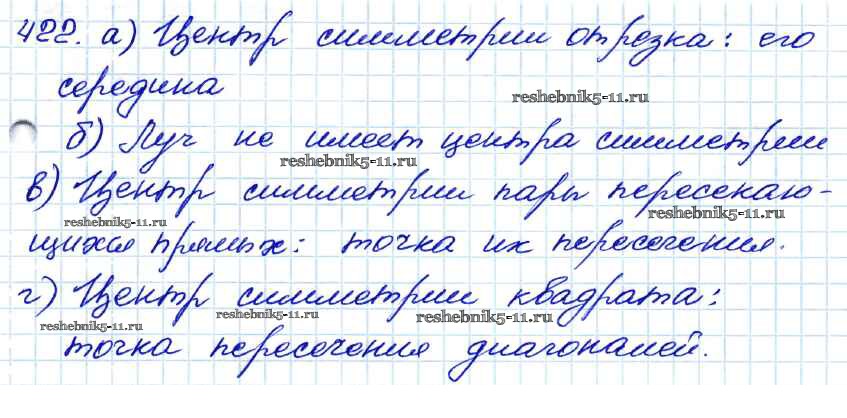 422. а) Центр симметрии отрезка: его
середина
reshebnik5-11.ru
б) Луч не имеет центра симметрии
reshebnik5-11.ru
в) Центр симметрии пары пересекаю-
reshebnik5-11.ru
reshebnik5-11.ru
щихся прямых: точка их пересечения.
г) Центр симметрии квадрата:
reshebnik5-11.ru
reshebnik5-11.ru
reshebnik5-11.ru
точка пересечения диагоналей.